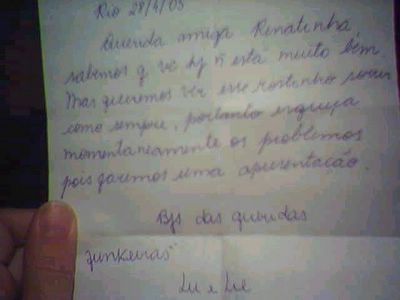 Rio 28/4/05
Querida amiga Renatinha,
sabemos q vc hj ñ está muito bem.
Mas queremos ver esse rostinho sorrir
como sempre, portanto esqueça
momentaneamente os problemas
pois faremos uma apresentação.
Bjs das queridas
funkeiras"
Lu e Lue